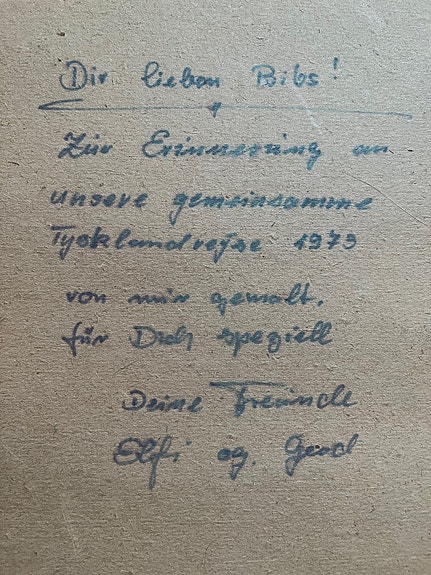 Dir lieben Bibs!
Zur Erinnerung an
unsere gemeinsamme
Tysklandrejse 1979
von mir gemalt.
für Dich speziell
Deine Freunde
Elfi og. Gerd